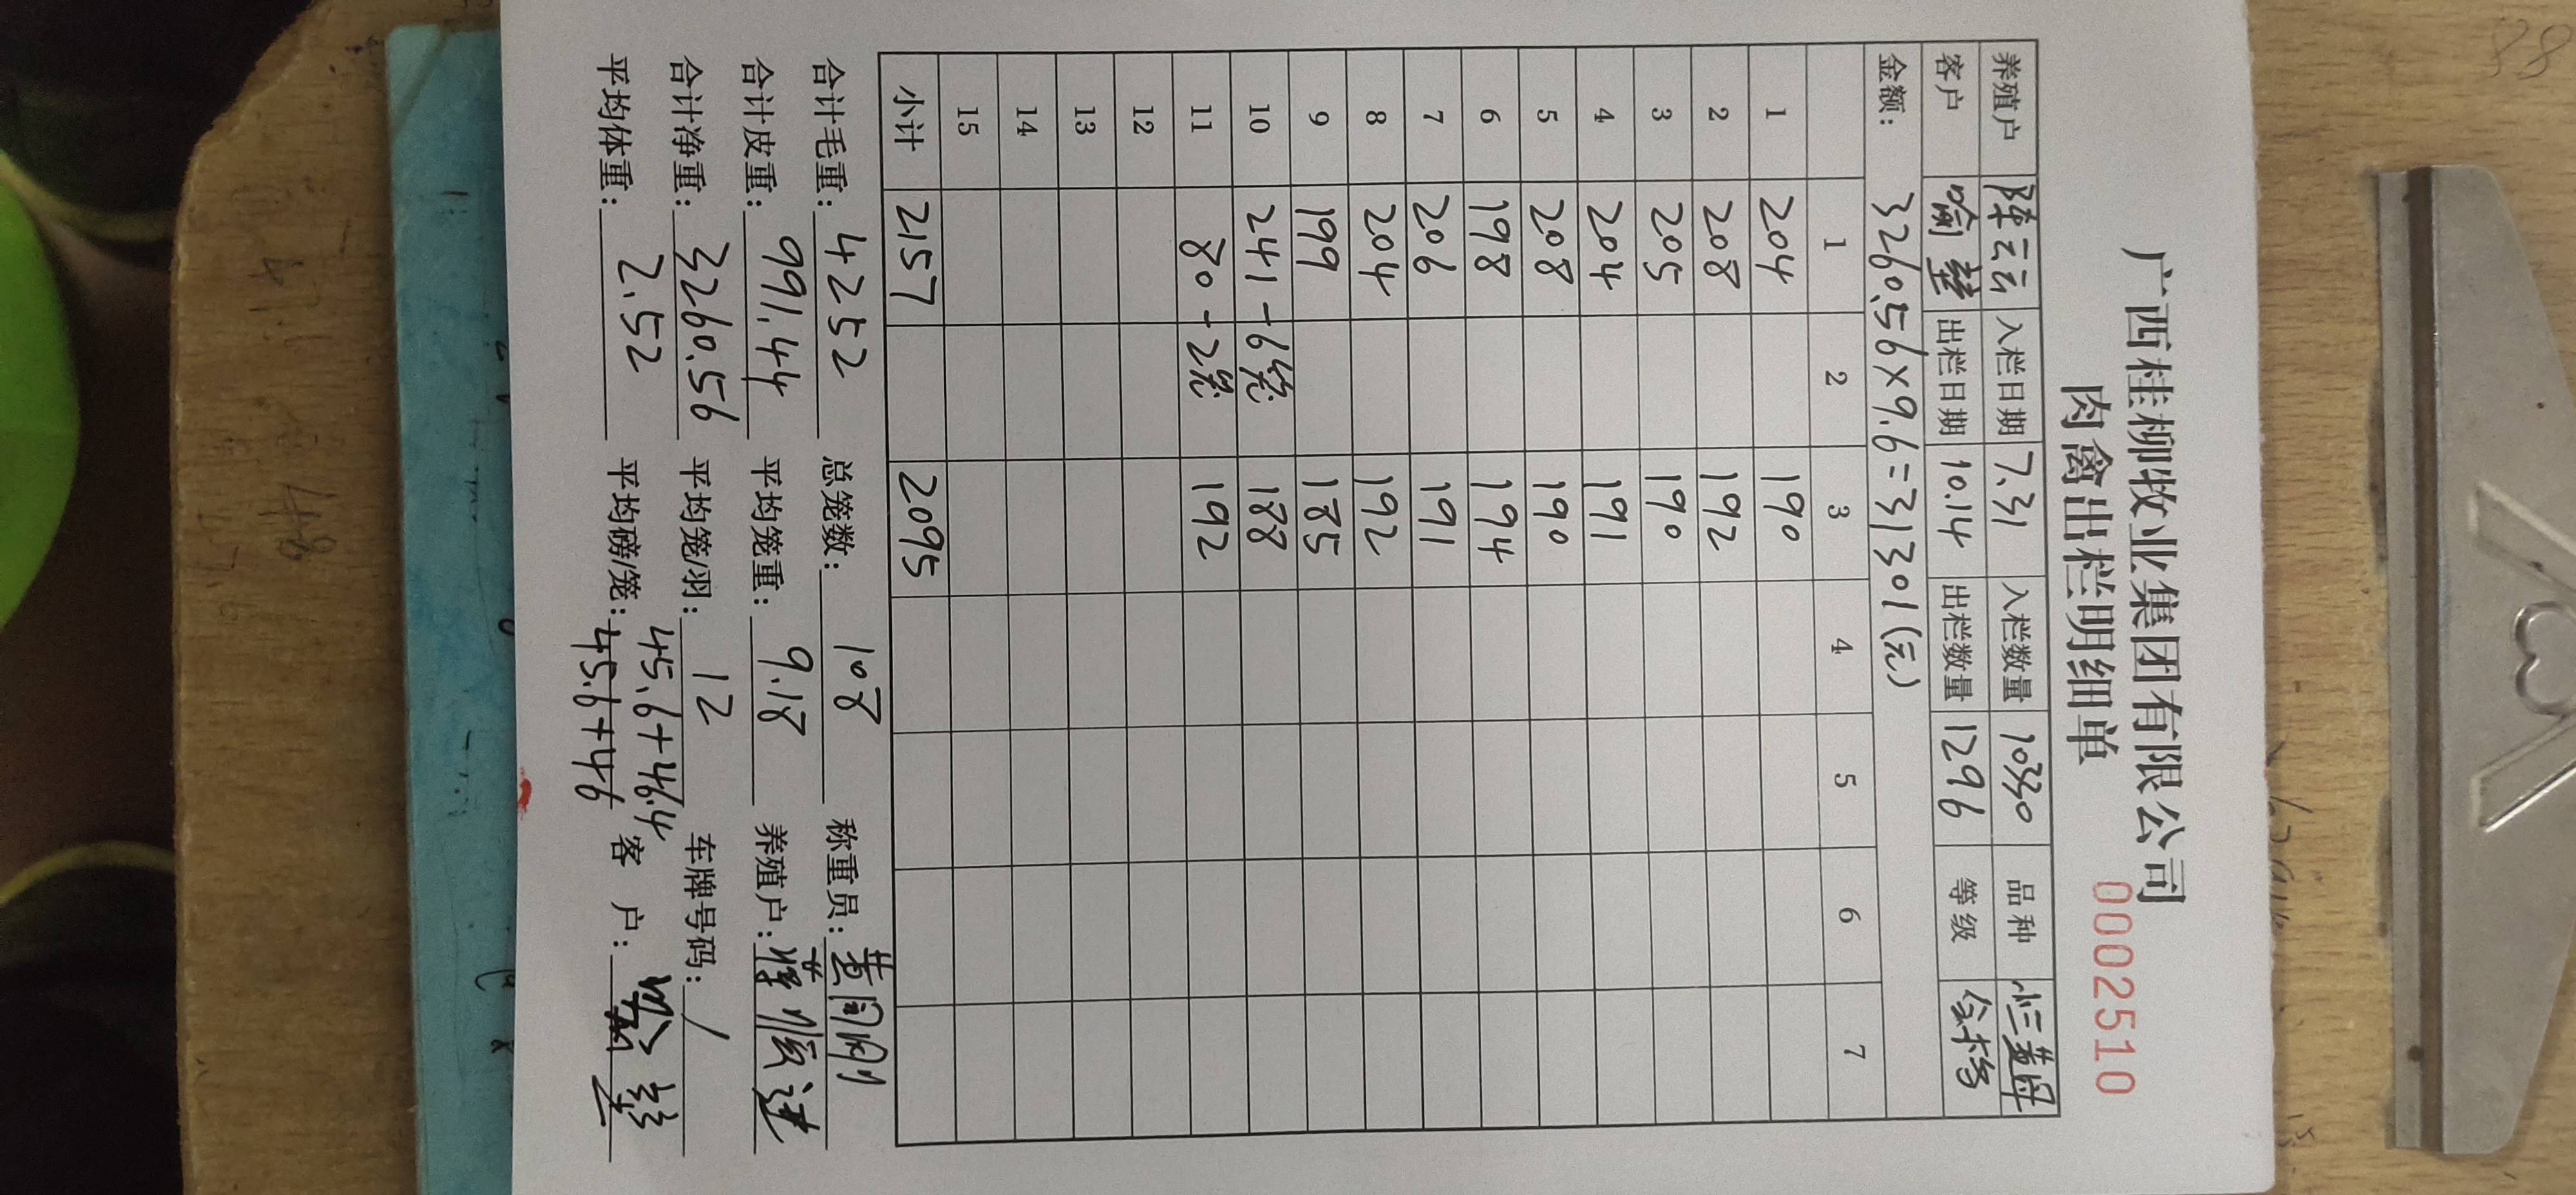 广西桂柳牧业集团有限公司
肉禽出栏明细单
00002510
养殖户 陈云云 入栏日期 7.31 入栏数量 10330 品种 小三黄母
客户 喻 出栏日期 10.14 出栏数量 1296 等级 合格
金额: 3260.56×9.6=31301(元)
1 2 3 4 5 6 7
1 204 190
2 208 192
3 205 190
4 204 191
5 208 190
6 198 194
7 206 191
8 204 192
9 199 185
10 241-6笼 188
11 80-2笼 192
12
13
14
15
小计 2157 2095
合计毛重: 4252 总笼数: 108 称重员:
合计皮重: 991.44 平均笼重: 9.18 养殖户:
合计净重: 3260.56 平均笼/羽: 12 车牌号码: /
45.6+46.4
平均体重: 2.52 平均磅/笼: 45.6+46 客 户: